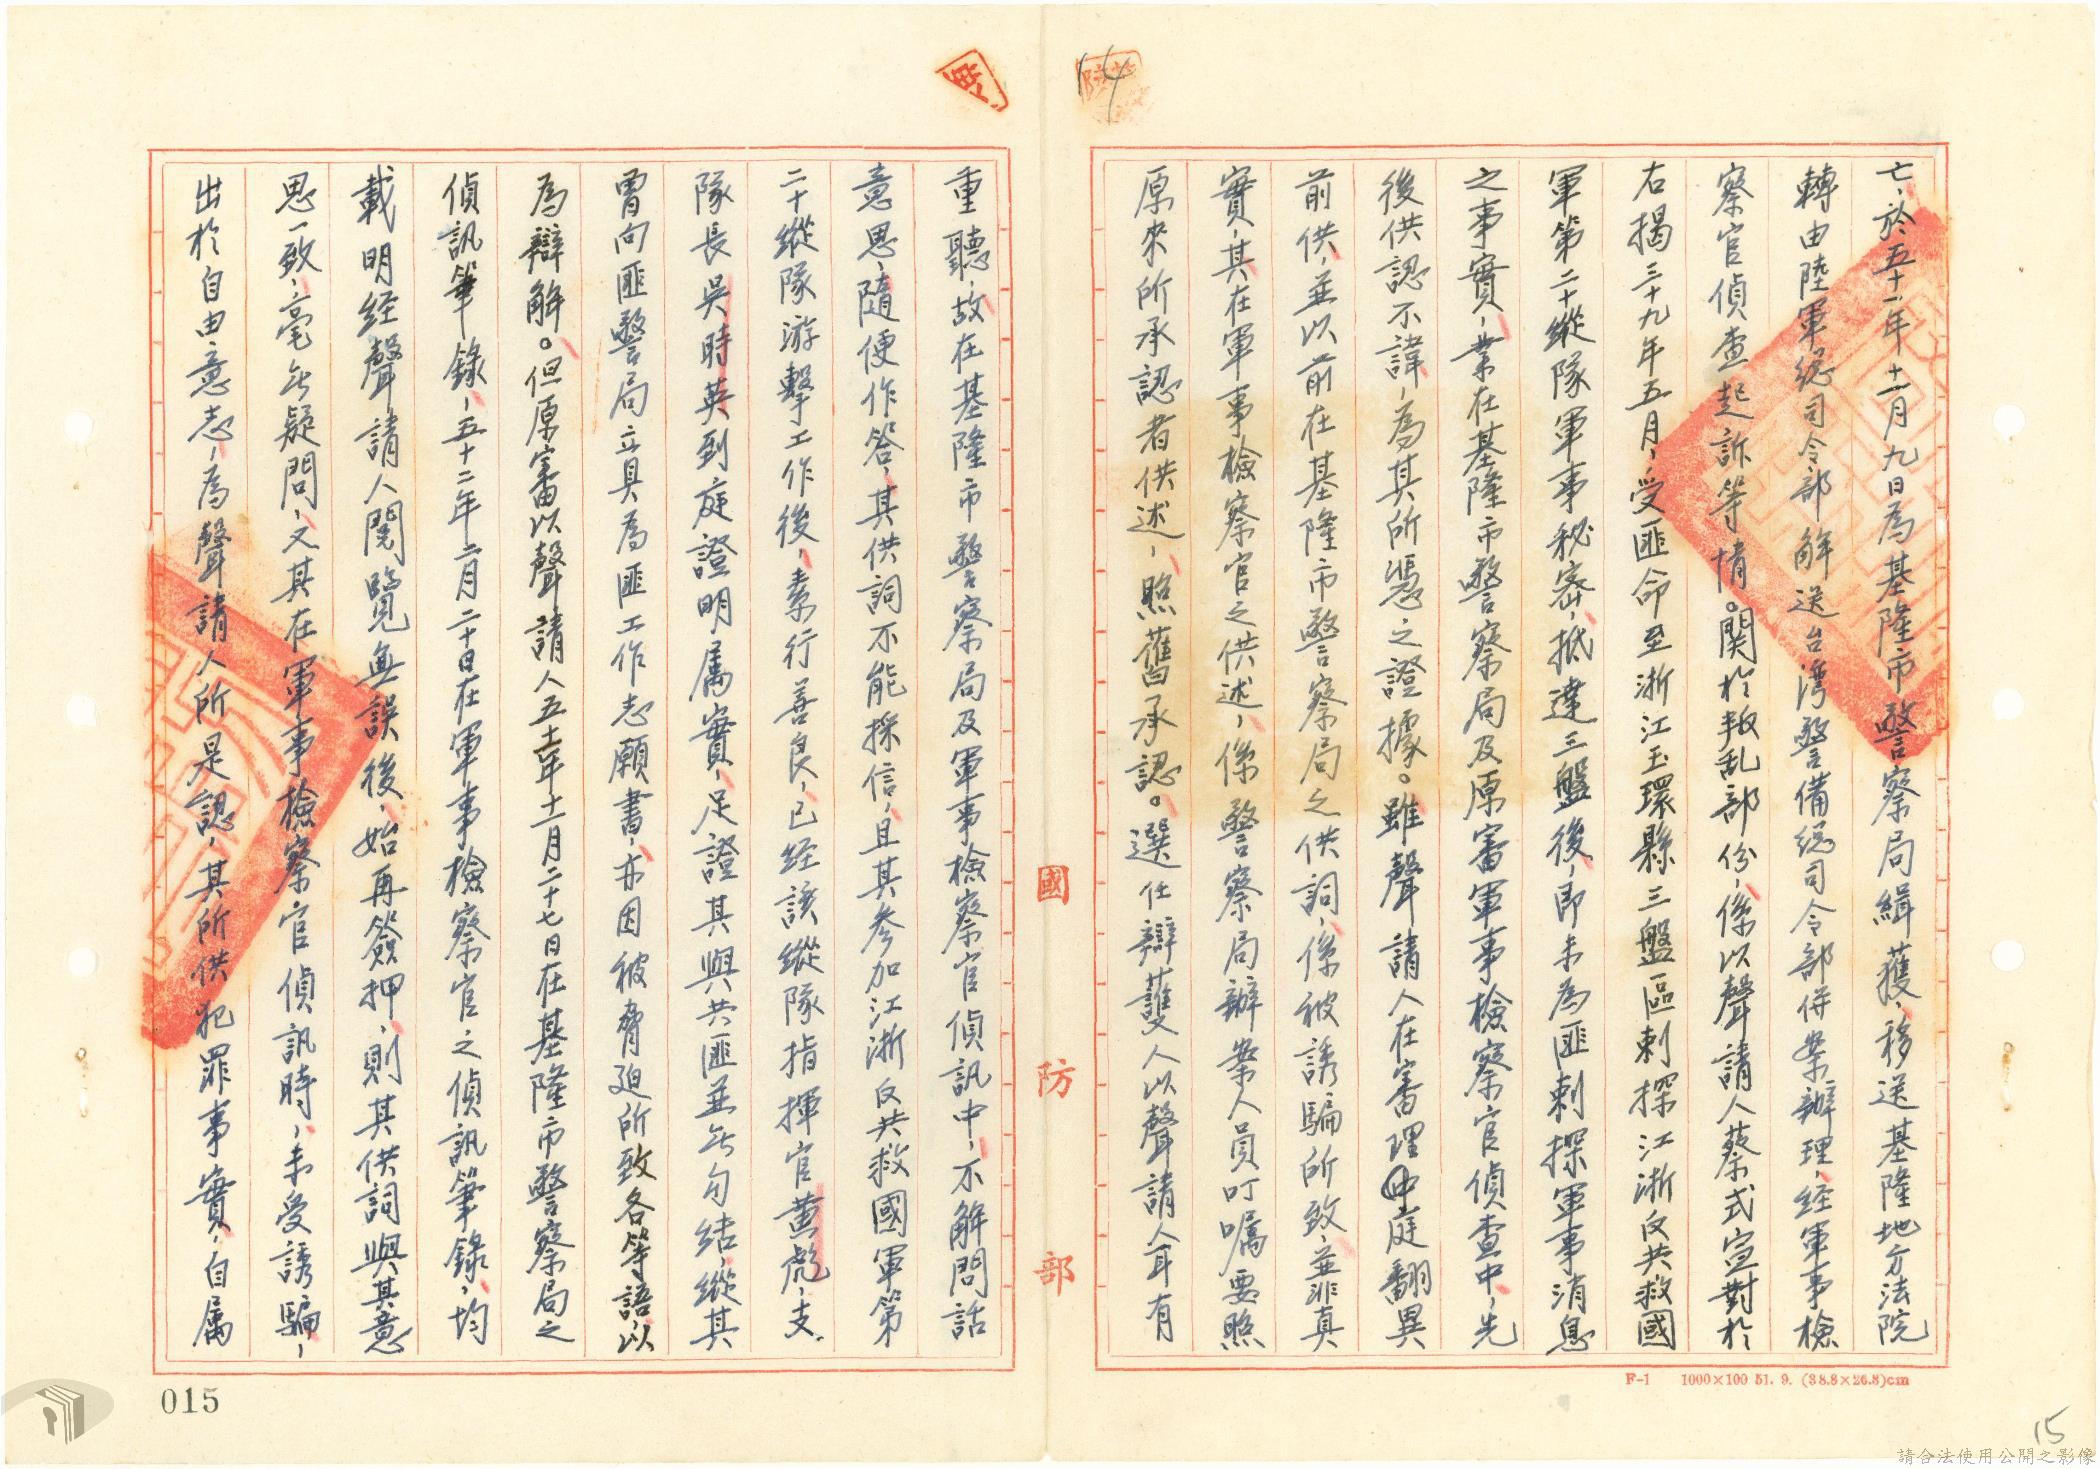 七、於五十一年十一月九日為基隆市警察局緝獲、移送基隆地方法院
轉由陸軍總司令部解送台灣警備總司令部併案辦理、經軍事檢
察官偵查起訴等情。關於叛乱部份、係以聲請人蔡式宣對於
右揭三十九年五月、受匪命至浙江玉環縣三盤區刺探江浙反共救國
軍第二十縱隊軍事秘密、抵達三盤後、即未為匪刺探軍事消息
之事實、業在基隆市警察局及原審軍事檢察官偵查中、先
後供認不諱、為其所憑之證據。雖聲請人在審理中庭翻異
前供、並以前在基隆市警察局之供詞、係被誘騙所致、並非真
實、其在軍事檢察官之供述、係警察局辦案人員叮嘱要照
原來所承認者供述、照舊承認。選任辯護人以聲請人耳有
重聽、故在基隆市警察局及軍事檢察官偵訊中、不解問話
意思、隨便作答、其供詞不能採信、且其參加江浙反共救國軍第
二十縱隊游擊工作後、素行善良、已經該縱隊指揮官董彪、支
隊長吳時英到庭證明属實、足證其與共匪並無勾結、縱其
曾向匪警局立具為匪工作志願書、亦因被脅迫所致各等語、以
為辯解。但原審以聲請人五十一年十一月二十七日在基隆市警察局之
偵訊筆錄、五十二年二月二十日在軍事檢察官之偵訊筆錄、均
載明經聲請人閱覽無誤後、始再簽押、則其供詞與其意
思一致、毫无疑問、又其在軍事檢察官偵訊時、未受誘騙、
出於自由意志、為聲請人所是認、其所供犯罪事實、自属
國防部
F-1 1000×100 51. 9. (38.8×26.8)cm
14
15
015
請合法使用公開之影像